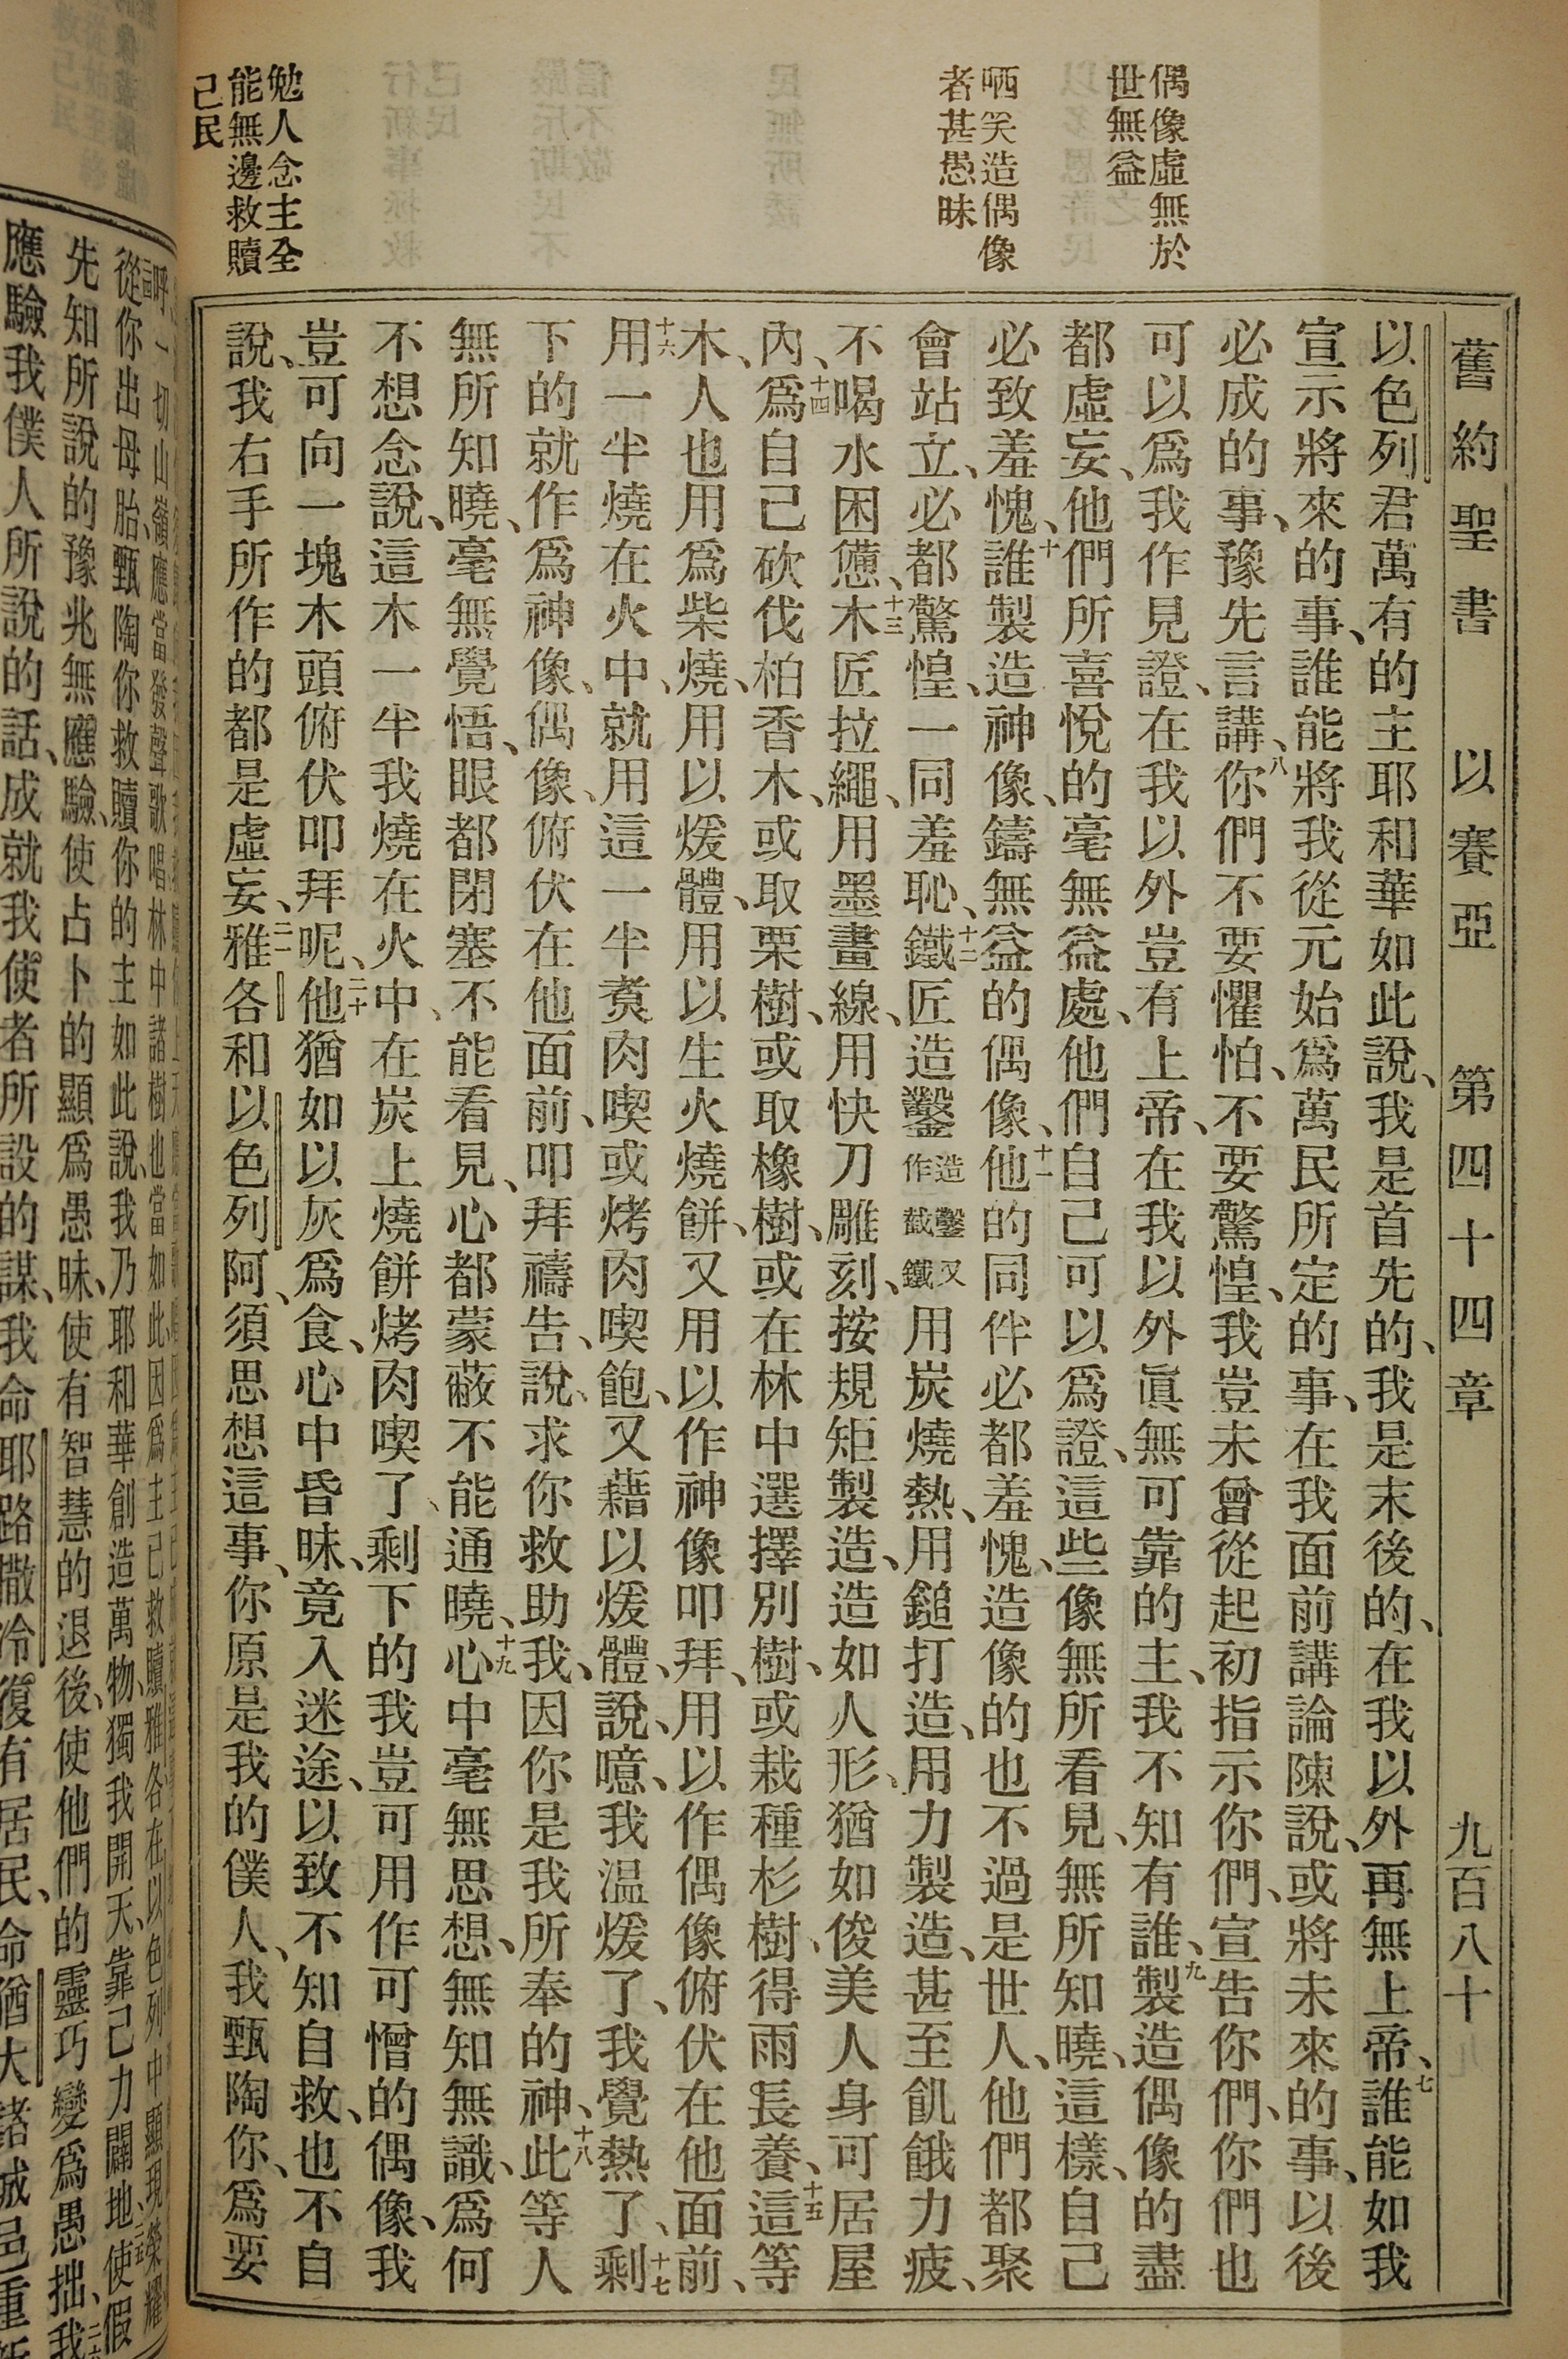 舊約聖書 以賽亞 第四十四章 九百八十
偶像虛無於
世無益
哂笑造偶像
者甚愚昧
勉人念主全
能無邊救贖
己民
以色列君萬有的主耶和華如此說、我是首先的、我是末後的、在我以外再無上帝、七誰能如我
宣示將來的事、誰能將我從元始爲萬民所定的事、在我面前講論陳說、或將未來的事、以後
必成的事、豫先言講、八你們不要懼怕、不要驚惶、我豈未曾從起初指示你們、宣告你們、你們也
可以爲我作見證、在我以外豈有上帝、在我以外眞無可靠的主、我不知有誰、九製造偶像的盡
都虛妄、他們所喜悅的毫無益處、他們自己可以爲證、這些像無所看見、無所知曉、這樣、自己
必致羞愧、十誰製造神像、鑄無益的偶像、十一他的同伴必都羞愧、造像的也不過是世人、他們都聚
會站立、必都驚惶、一同羞恥、十二鐵匠造鑿造鑿又作截鐵用炭燒熱、用鎚打造、用力製造、甚至飢餓力疲、
不喝水困憊、十三木匠拉繩、用墨畫線、用快刀雕刻、按規矩製造、造如人形、猶如俊美人身可居屋
內、十四爲自己砍伐柏香木、或取栗樹、或取橡樹、或在林中選擇別樹、或栽種杉樹、得雨長養、十五這等
木、人也用爲柴燒、用以煖體、用以生火燒餅、又用以作神像叩拜、用以作偶像俯伏在他面前、
十六用一半燒在火中、就用這一半煑肉喫或烤肉喫飽、又藉以煖體、說、噫、我温煖了、我覺熱了、十七剩
下的就作爲神像、偶像、俯伏在他面前、叩拜禱告、說、求你救助我、因你是我所奉的神、十八此等人
無所知曉、毫無覺悟、眼都閉塞不能看見、心都蒙蔽不能通曉、十九心中毫無思想、無知無識、爲何
不想念說、這木一半我燒在火中、在炭上燒餅烤肉喫了、剩下的我豈可用作可憎的偶像、我
豈可向一塊木頭俯伏叩拜呢、二十他猶如以灰爲食、心中昏昧、竟入迷途、以致不知自救、也不自
說、我右手所作的都是虛妄、二一雅各和以色列阿、須思想這事、你原是我的僕人、我甄陶你、爲要
呼、一切山嶺應當發聲歌唱、林中諸樹也當如此、因爲主已救贖雅各、在以色列中顯現榮耀
從你出母胎、甄陶你救贖你的主如此說、我乃耶和華創造萬物、獨我開天、靠己力闢地、二五使假
先知所說的豫兆無應驗、使占卜的顯爲愚昧、使有智慧的退後、使他們的靈巧變爲愚拙、二六我
應驗我僕人所說的話、成就我使者所設的謀、我命耶路撒冷復有居民、命猶大諸城邑重新